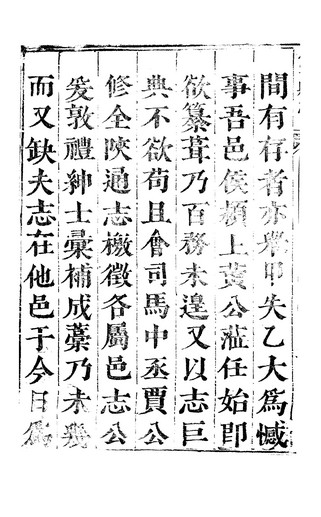 間有存者亦舉甲失乙大爲憾
事吾邑侯潁上黃公蒞任始即
欲纂葺乃百務未遑又以志巨
典不欲苟且會司馬中丞賈公
修全陝通志檄徵各屬邑志公
爰敦禮紳士彙補成藁乃未幾
而又缺夫志在他邑于今日爲